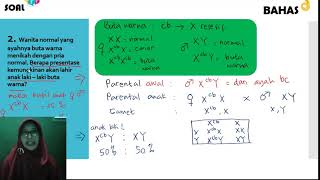 SOAL
BAHAS
2. Wanita normal yang
ayahnya buta warna
menikah dengan pria
normal. Berapa presentase
kemungkinan akan lahir
anak laki – laki buta
warna?
Buta warna : cb → X resesif
XX = normal
XY = normal
buta
warna
Parental awal : ♂ X^cb Y = dari ayah bc
Parental anak : ♀ X^cb X × ♂ XY
Gamet : X^cb, X X, Y
anak laki²
X^cb Y : XY
50% : 50%
X^cb X
X X^cb X XX
Y X^cb Y XY